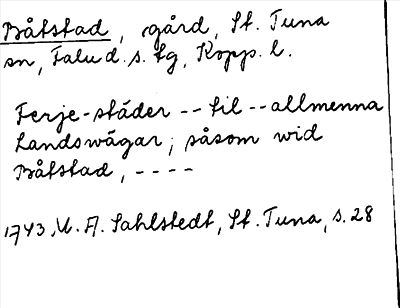 Båtstad, gård, St. Tuna
sn, Falu d. s. tg, Kopp. l.
Ferje-städer -- til -- allmenna
Landswägar; såsom wid
Båtstad, ----
1743 M. A. Sahlstedt, St. Tuna, s. 28